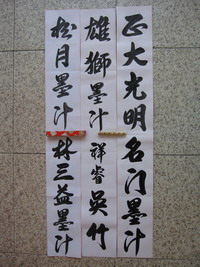 正大光明名门墨汁
雄獅墨汁祥睿吳竹
松月墨汁林三益墨汁